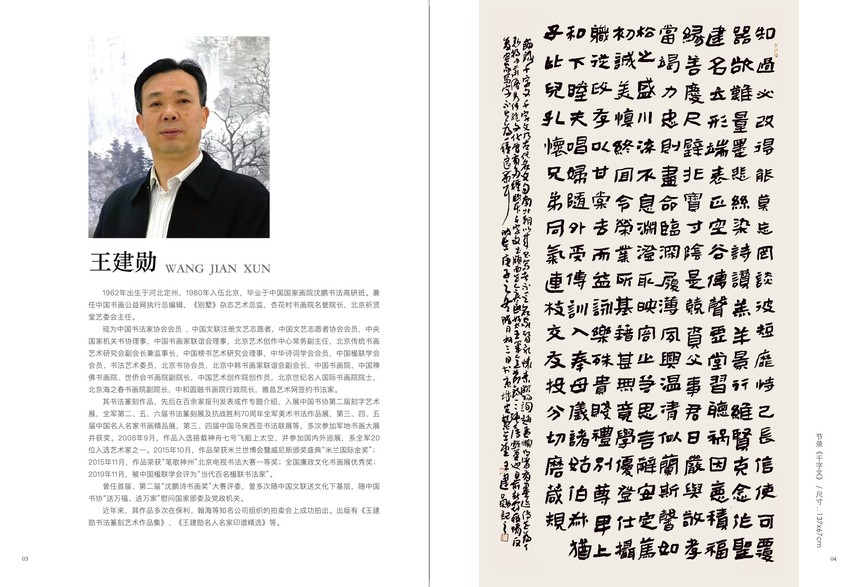 王建勋 WANG JIAN XUN
1962年出生于河北定州，1980年入伍北京，毕业于中国国家画院沈鹏书法高研班。兼
任中国书画公益网执行总编辑，《别墅》杂志艺术总监，杏花村书画院名誉院长，北京祈贤
堂艺委会主任。
现为中国书法家协会会员，中国文联注册文艺志愿者，中国文艺志愿者协会会员，中央
国家机关书协理事，中国书画家联谊会理事，北京艺术创作中心常务副主任，北京传统书画
艺术研究会副会长兼监事长，中国榜书艺术研究会理事，中华诗词学会会员，中国楹联学会
会员、书法艺术委员，北京书协会员，北京中韩书画家联谊会副会长，中国书画院、中国禅
佛书画院、世侨会书画院副院长，中国艺术创作院创作员，北京世纪名人国际书画院院士，
北京海之春书画院副院长，中和圆融书画院行政院长，雅昌艺术网签约书法家。
其书法篆刻作品，先后在百余家报刊发表或作专题介绍，入展中国书协第二届刻字艺术
展，全军第二、五、六届书法篆刻展及抗战胜利70周年全军美术书法作品展，第三、四、五
届中国名人名家书画精品展，第三、四届中国马来西亚书法联展等，多次参加军地书画大展
并获奖。2008年9月，作品入选搭载神舟七号飞船上太空，并参加国内外巡展，系全军20
位入选艺术家之一。2015年10月，作品荣获米兰世博会暨威尼斯颁奖盛典“米兰国际金奖”；
2015年11月，作品荣获“笔歌神州”北京电视书法大赛一等奖；全国廉政文化书画展优秀奖；
2019年11月，被中国楹联学会评为“当代百名楹联书法家”。
曾任首届、第二届“沈鹏诗书画奖”大赛评委，曾多次随中国文联送文化下基层，随中国
书协“送万福、进万家”慰问国家部委及党政机关。
近年来，其作品多次在保利、翰海等知名公司组织的拍卖会上成功拍出。出版有《王建
勋书法篆刻艺术作品集》、《王建勋名人名家印谱精选》等。
03
知過必改得能莫忘罔談彼短靡恃己長信使可覆
器欲難量墨悲絲染詩讚羔羊景行維賢克念作聖
建名立形端表正空谷傳聲虛堂習聽禍因惡積福
緣善慶尺璧非寶寸陰是競資父事君曰嚴與敬孝
當竭力忠則盡命臨深履薄夙興溫凊似蘭斯馨如
松之盛川流不息淵澄取映容止若思言辭安定篤
初誠美慎終宜令榮業所基藉甚無竟學優登仕攝
職從政存以甘棠去而益詠樂殊貴賤禮別尊卑上
和下睦夫唱婦隨外受傅訓入奉母儀諸姑伯叔猶
子比兒孔懷兄弟同氣連枝交友投分切磨箴規
节录《千字文》 / 尺寸：137x67cm
04